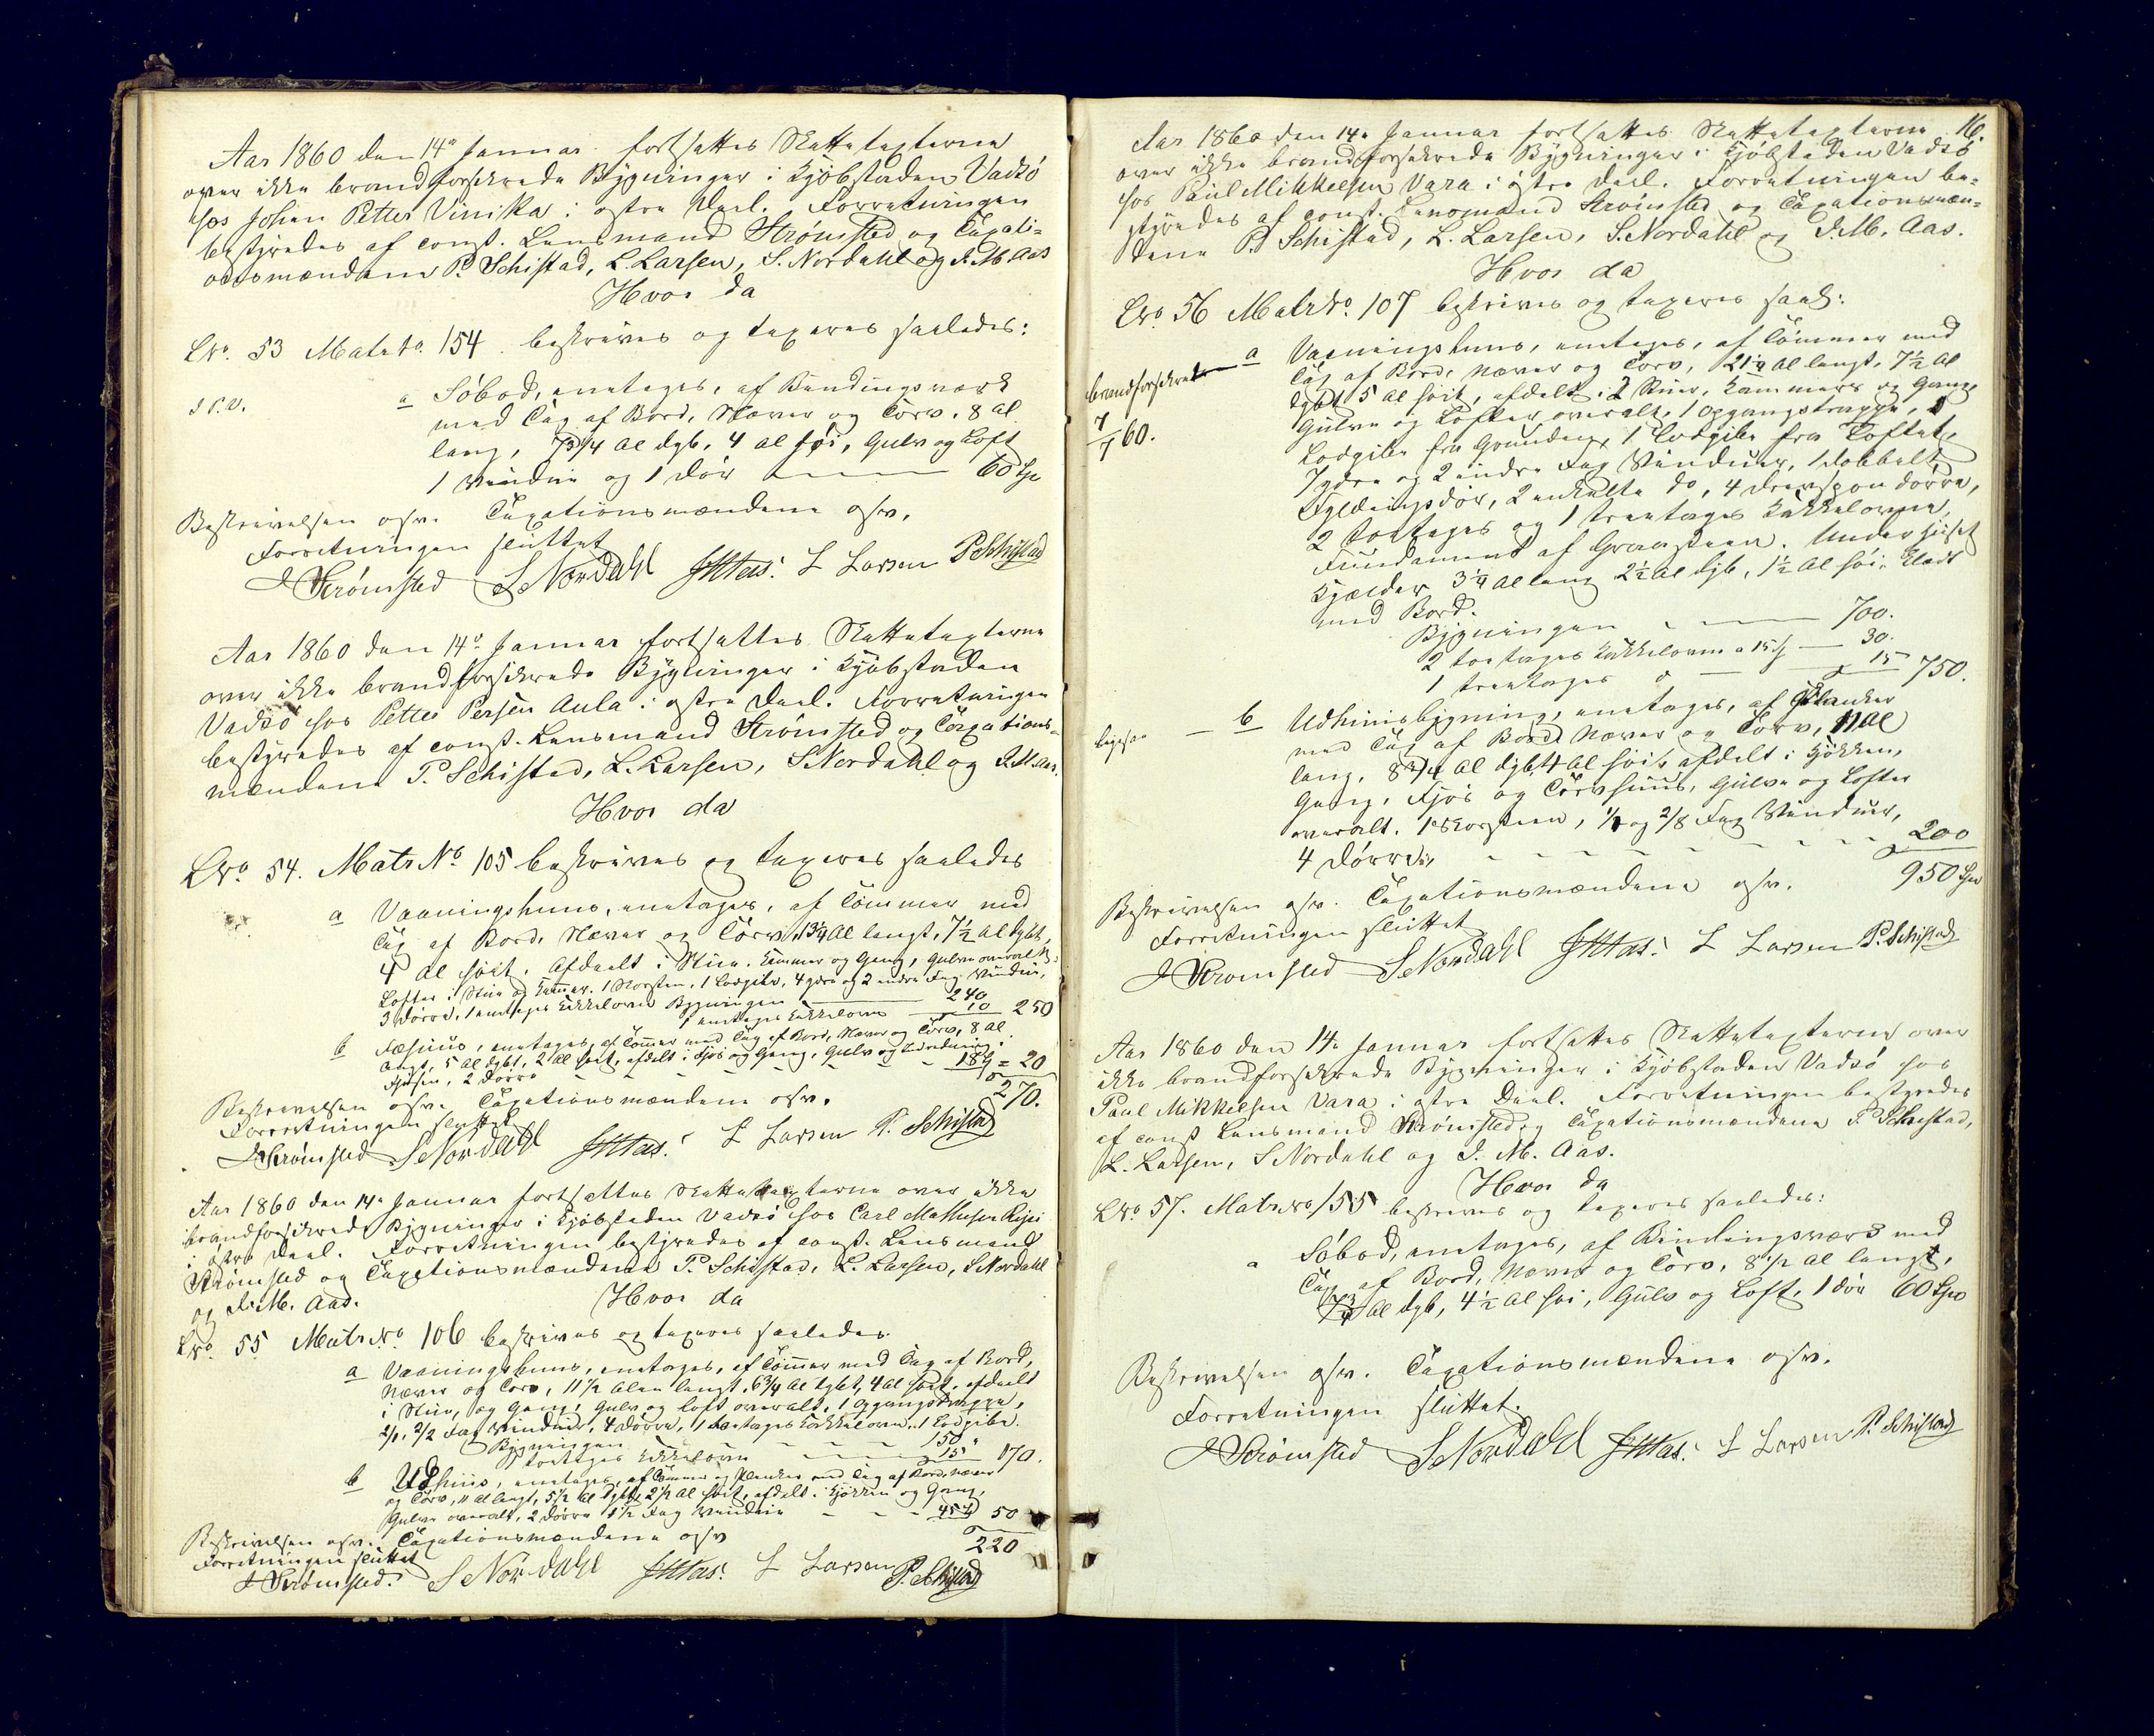 Aar 1860 den 14de Januar fortsattes Skattetaxterne
over ikke brandforsikrede Bygninger i Kjöbstaden Vadsö
hos Johan Petter Vinika i östre Deel. Forretningen
bestyredes af const. Lensmand Strömsted og Taxati=
onsmændene P. Schistad, L. Larsen, S. Nordahl og J. M. Aas
Hvor da
LNo. 53 Matr No. 154 beskrives og taxeres saaledes:
a Söbod, eenetages, af Bindingsværk
med Tag af Bord, Næver og Törv, 8 Al
lang, 7 3/4 Al dyb, 4 Al höi, Gulv og Loft
1 Vindue og 1 Dör 60 Spd
Beskrivelsen osv. Taxationsmændene osv.
Forretningen sluttet
J Strömsted S Nordahl JMAas. L Larsen P Schistad
Aar 1860 den 14de Januar fortsattes Skattetaxterne
over ikke brandforsikrede Bygninger i Kjöbstaden
Vadsö hos Petter Persen Aula i östre Deel. Forretningen
bestyredes af const. Lensmand Strömsted og Taxations=
mændene P. Schistad, L. Larsen, S. Nordahl og J. M. Aas.
Hvor da
LNo. 54. Matr No. 105 beskrives og taxeres saaledes
a Vaaningshuus, eenetages, af Tömmer med
Tag af Bord, Næver og Törv, 13 1/4 Al langt, 7 1/2 Al dybt,
4 Al höit. Afdeelt i Stue, Kammer og Gang, Gulve overalt,
Lofter i Stue og Kammer. 1 Skorsten, 1 Lodpibe, 4 ydre og 2 indre Fag Vinduer,
3 Dörre, 1 eenetages Kakkelovn Bygningen 240
1 eenetages Kakkelovn 10 250
b Fæhuus, eenetages, af Tömmer med Tag af Bord, Næver og Törv, 8 Al
langt, 5 Al dybt, 2 Al höit, afdelt i Fjös og Gang, Gulv og Indredning i
Fjösen, 2 Dörre 20
270.
Beskrivelsen osv. Taxationsmændene osv.
Forretningen sluttet
J Strömsted S Nordahl JMAas. L Larsen P. Schistad
Aar 1860 den 14de Januar fortsattes Skattetaxterne over ikke
brandforsikrede Bygninger i Kjöbstaden Vadsö hos Carl Mathisen
i östre Deel. Forretningen bestyredes af const. Lensmand
Strömsted og Taxationsmændene P. Schistad, L. Larsen, S. Nordahl
og J. M. Aas.
Hvor da
LNo. 55 Matr No. 106 beskrives og taxeres saaledes
a Vaaningshuus, eenetages, af Tömmer med Tag af Bord,
Næver og Törv, 11 1/2 Alen langt, 6 3/4 Al dybt, 4 Al höit, afdeelt
i Stue, og Gang, Gulv og Loft overalt, 1 Opgangstrappe,
2/1, 2/2 Fag Vinduer, 4 Dörre, 1 toetages Kakkelovn, 1 Lodpibe.
Bygningen 150
1 toetages Kakkelovn 15 170.
b Udhuus, eenetages, af Tömmer og Planker med Tag af Bord, Næver
og Törv, 11 Al langt, 5 1/2 Al dybt, 2 1/2 Al höit, afdelt i Kjökken og Gang,
Gulve overalt, 2 Dörre 1 1/2 Fag Vindue 50
220
Beskrivelsen osv. Taxationsmændene osv
Forretningen sluttet
J Strömsted. S Nordahl JMAas. L Larsen P. Schistad
16.
Aar 1860 den 14de Januar fortsattes Skattetaxterne
over ikke brandforsikrede Bygninger i Kjöbstaden Vadsö
hos Paul Mikkelsen Vara i östre Deel. Forretningen be=
styredes af const. Lensmand Strömsted og Taxationsmæn=
dene P. Schistad, L. Larsen, S. Nordahl og J. M. Aas.
Hvor da
LNo. 56 Matr No. 107 beskrives og taxeres saal:
brandforsikret
7/7 60.
a Vaaningshuus, eenetages, af Tömmer med
Tag af Bord, Næver og Törv, 21 1/4 Al langt, 7 1/2 Al
dybt 5 Al höit, afdelt i 2 Stuer, Kammers og Gang,
Gulve og Lofter overalt, 1 Opgangstrappe, 1
Lodpibe fra Grunden, 1 Lodpibe fra Loftet,
7 ydre og 2 indre Fag Vinduer, 1 dobbelt
Fyldingsdör, 2 enkelte do, 4 Dörre,
2 toetages og 1 treetages Kakkelovne,
Fundament af Graasteen. Under Huset
Kjælder 3 1/4 Al lang 2 1/2 Al dyb, 1 1/2 Al höi, klædt
med Bord.
Bygningen 700.
2 toetages Kakkelovne a 15 30.
1 treetages d 15 750.
ligesaa
b Udhuusbygning, eenetages, af Planker
med Tag af Bord, Næver og Törv, 11 Al
lang, 8 3/4 Al dyb, 4 Al höi, afdelt i Kjökken,
Gang, Fjös og Törvhuus, Gulve og Lofter
overalt. 1 Skorsteen, 1/1 og 2/8 Fag Vinduer,
4 Dörre. 200
950 Spd
Beskrivelsen osv. Taxationsmændene osv.
Forretningen sluttet
J Strömsted S Nordahl JMAas. L Larsen P. Schistad
Aar 1860 den 14de Januar fortsattes Skattetaxterne over
ikke brandforsikrede Bygninger i Kjöbstaden Vadsö, hos
Paul Mikkelsen Vara i östre Deel. Forretningen bestyredes
af const Lensmand Strömsted og Taxationsmændene P. Schistad,
L. Larsen, S Nordahl og J. M. Aas.
Hvor da
LNo. 57. Matr No. 155 beskrives og taxeres saaledes:
a Söbod, eenetages, af Bindingsværk med
Tag af Bord, Næver og Törv, 8 1/2 Al langt,
7 3/4 Al dyb, 4 1/2 Al höi, Gulv og Loft, 1 Dör 60 Spd
Beskrivelsen osv. Taxationsmændene osv.
Forretningen sluttet.
J Strömsted S Nordahl JMAas. L Larsen P. Schistad